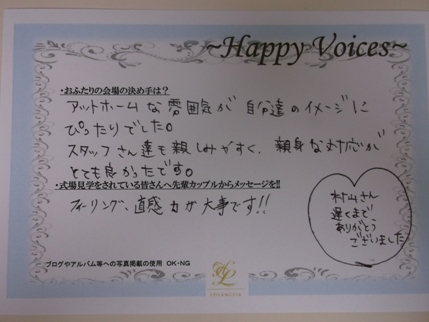 ~Happy Voices~
・おふたりの会場の決め手は？
アットホームな雰囲気が自分達のイメージに
ぴったりでした。
スタッフさん達も親しみやすく、親身な対応が
とても良かったです。
・式場見学をされている皆さんへ先輩カップルからメッセージを!!
フィーリング、直感力が大事です!!
村山さん
遅くまで、
ありがとう
ございました
ブログやアルバム等への写真掲載の使用 OK・NG